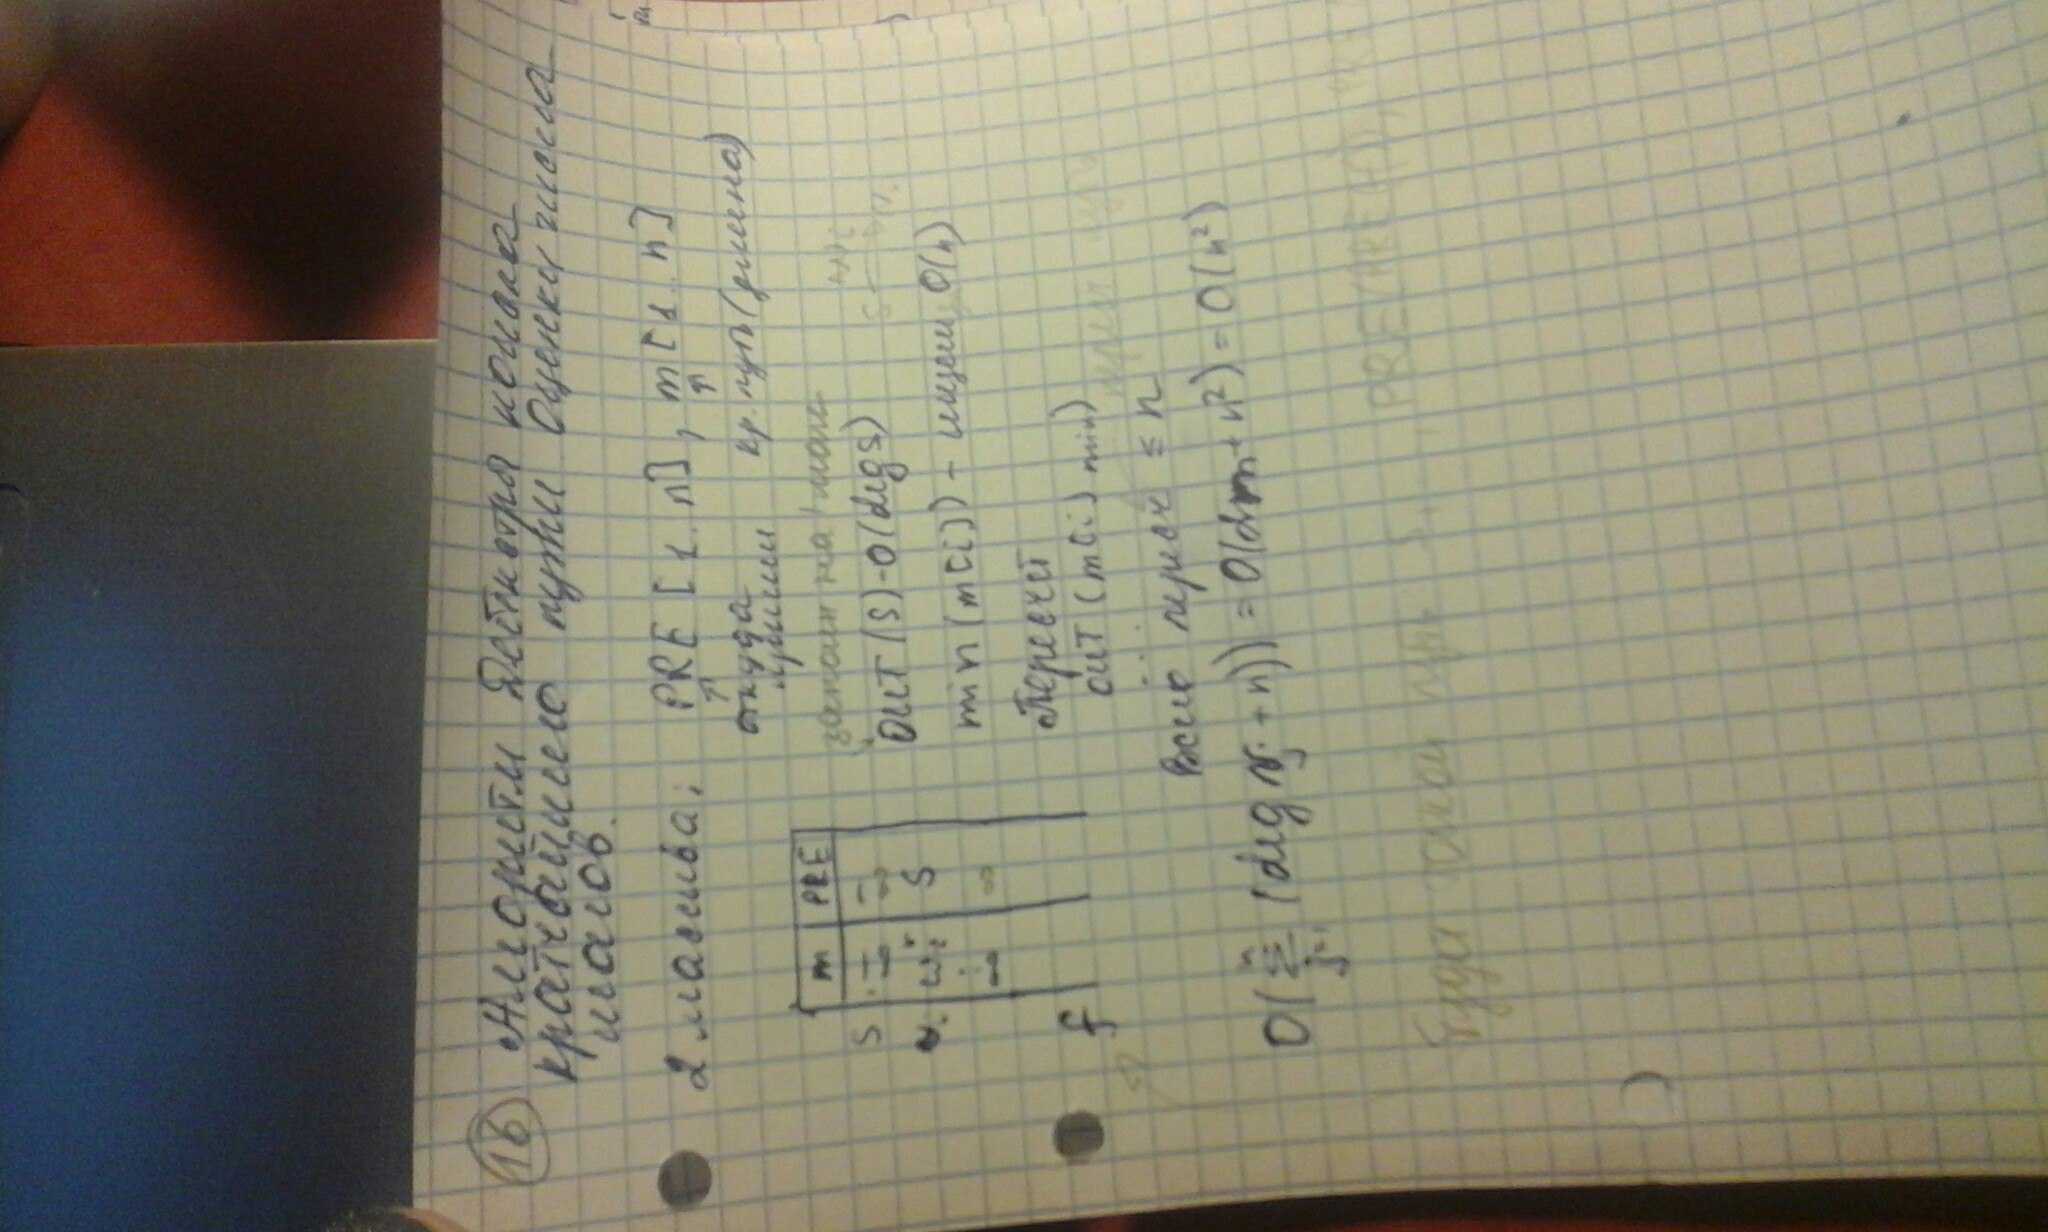 16 Алгоритм Дейкстры поиска
кратчайшего пути Оценки числа
шагов.
2 массива: PRE [1..n], m[1..n]
откуда пришли кр. путь (длина)
m PRE
заполн на 1 шаге
S
OUT (S) - O(deg s)
S
min (m[i]) - ищем O(n)
Пересчёт
f
OUT (m[i] min)
...
Всего пересч ≤ n
O(∑ (deg vj + n)) = O(2m + n²) = O(n²)
путь S, ..., PRE(PRE(f)),